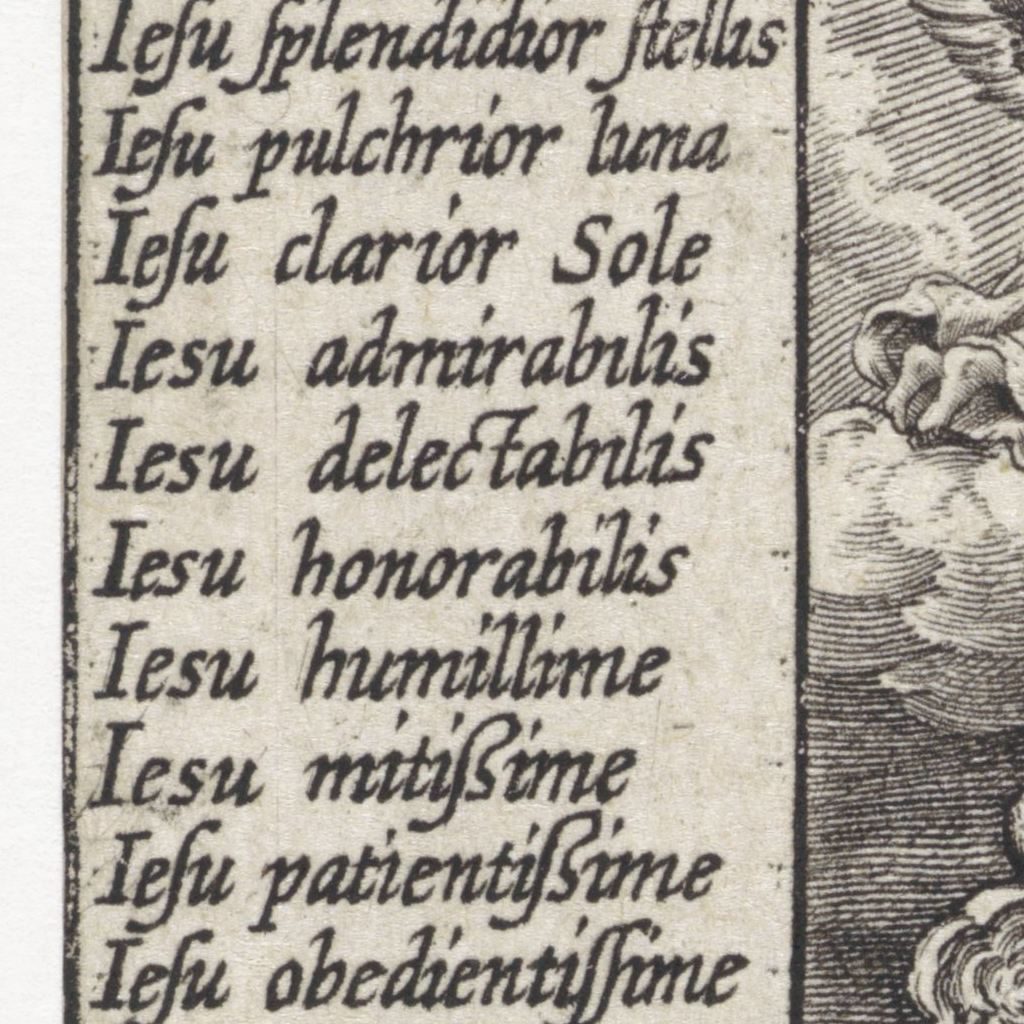 Ieſu ſplendidior ſtellis
Ieſu pulchrior luna
Ieſu clarior Sole
Iesu admirabilis
Iesu delectabilis
Iesu honorabilis
Iesu humillime
Iesu mitißime
Ieſu patientißime
Ieſu obedientiſſime